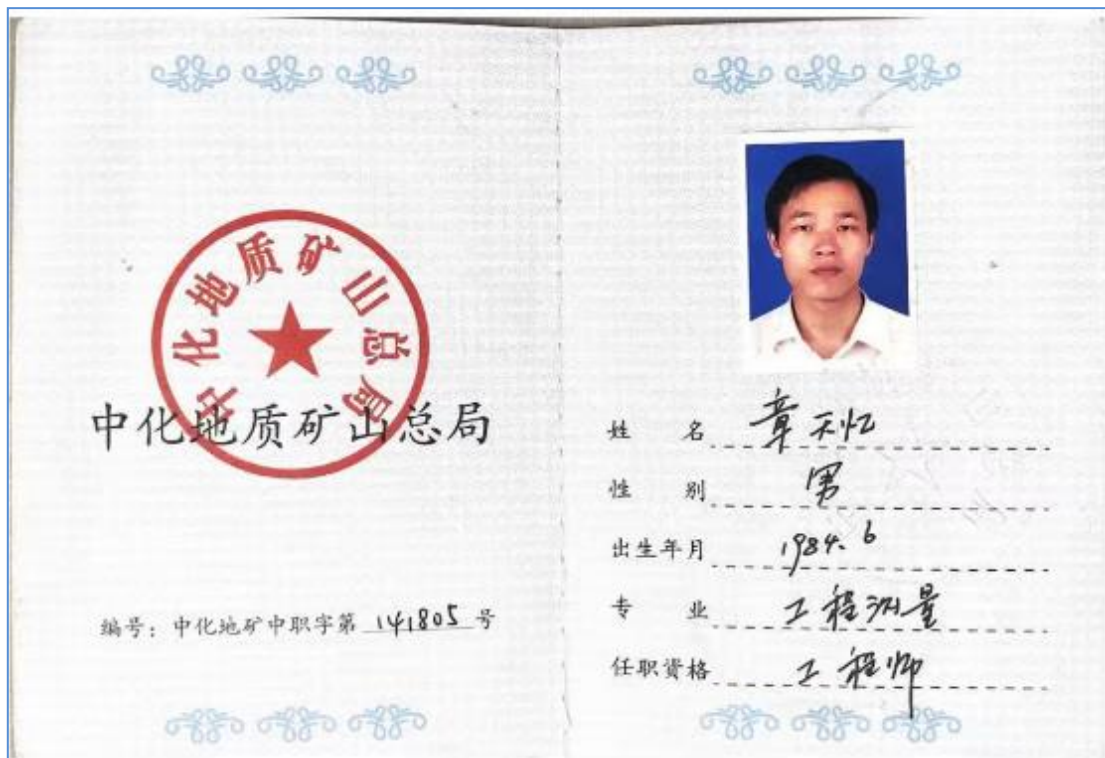 中化地质矿山总局
中化地质矿山总局
编号：中化地矿中职字第 141805 号
姓 名 章天忆
性 别 男
出生年月 1984.6
专 业 工程测量
任职资格 工程师